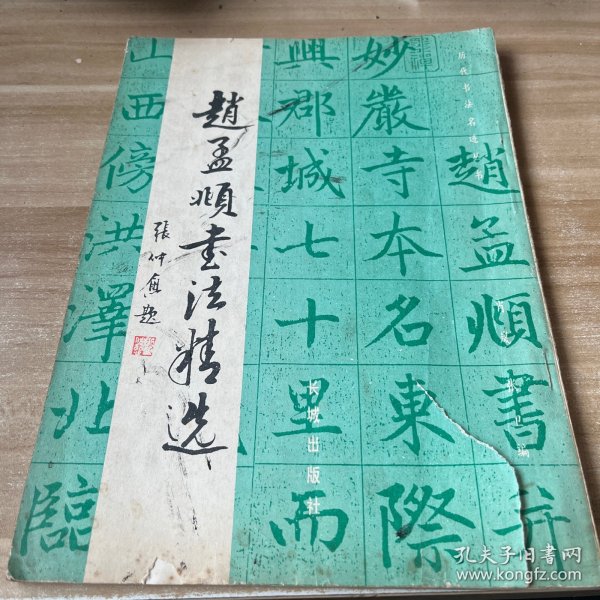 趙孟頫书法精选
張仲愈题
历代书法名迹
长城出版社
编
趙孟頫書并
妙嚴寺本名東際
興郡城七十里而
山西傍洪澤北臨
孔夫子旧书网
www.kongfz.com